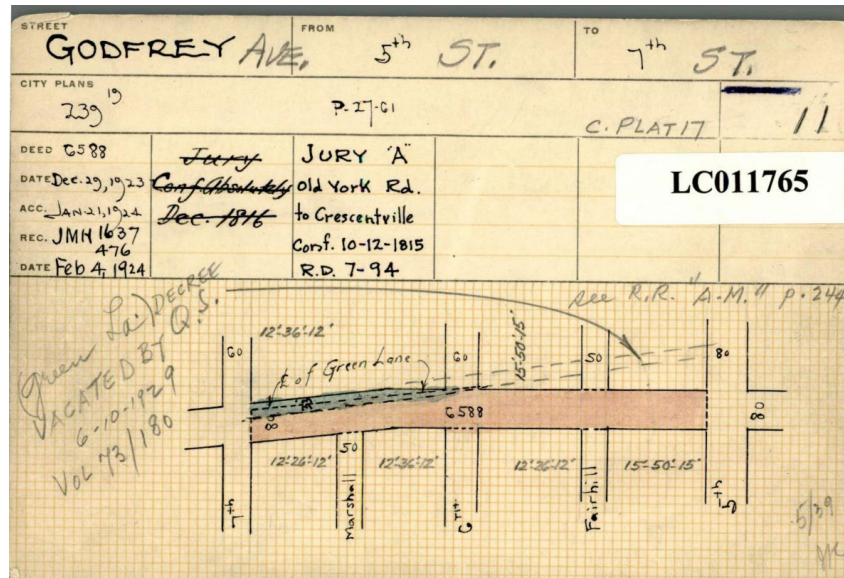 STREET
GODFREY AVE.
FROM
5th ST.
TO
7th ST.
CITY PLANS
239 19
P-27-61
C. PLAT 17
11
DEED 6588
DATE Dec. 29, 1923
ACC. JAN-21, 1924
REC. JMH 1637
476
DATE Feb 4, 1924
Jury
Conf. Absolutely
Dec. 1816
JURY "A"
Old York Rd.
to Crescentville
Conf. 10-12-1815
R.D. 7-94
LC011765
see R.R. "A.M." p. 244
Green La. DECREE
VACATED BY Q.S.
6-10-1929
VOL 73/180
12'-36'-12'
15'-50'-15'
60
60
50
80
℄ of Green Lane
80
6588
80
50
12'-26'-12'
12'-36'-12'
12'-26'-12'
15'-50'-15'
7th
Marshall
6TH
Fairhill
5th
5/39